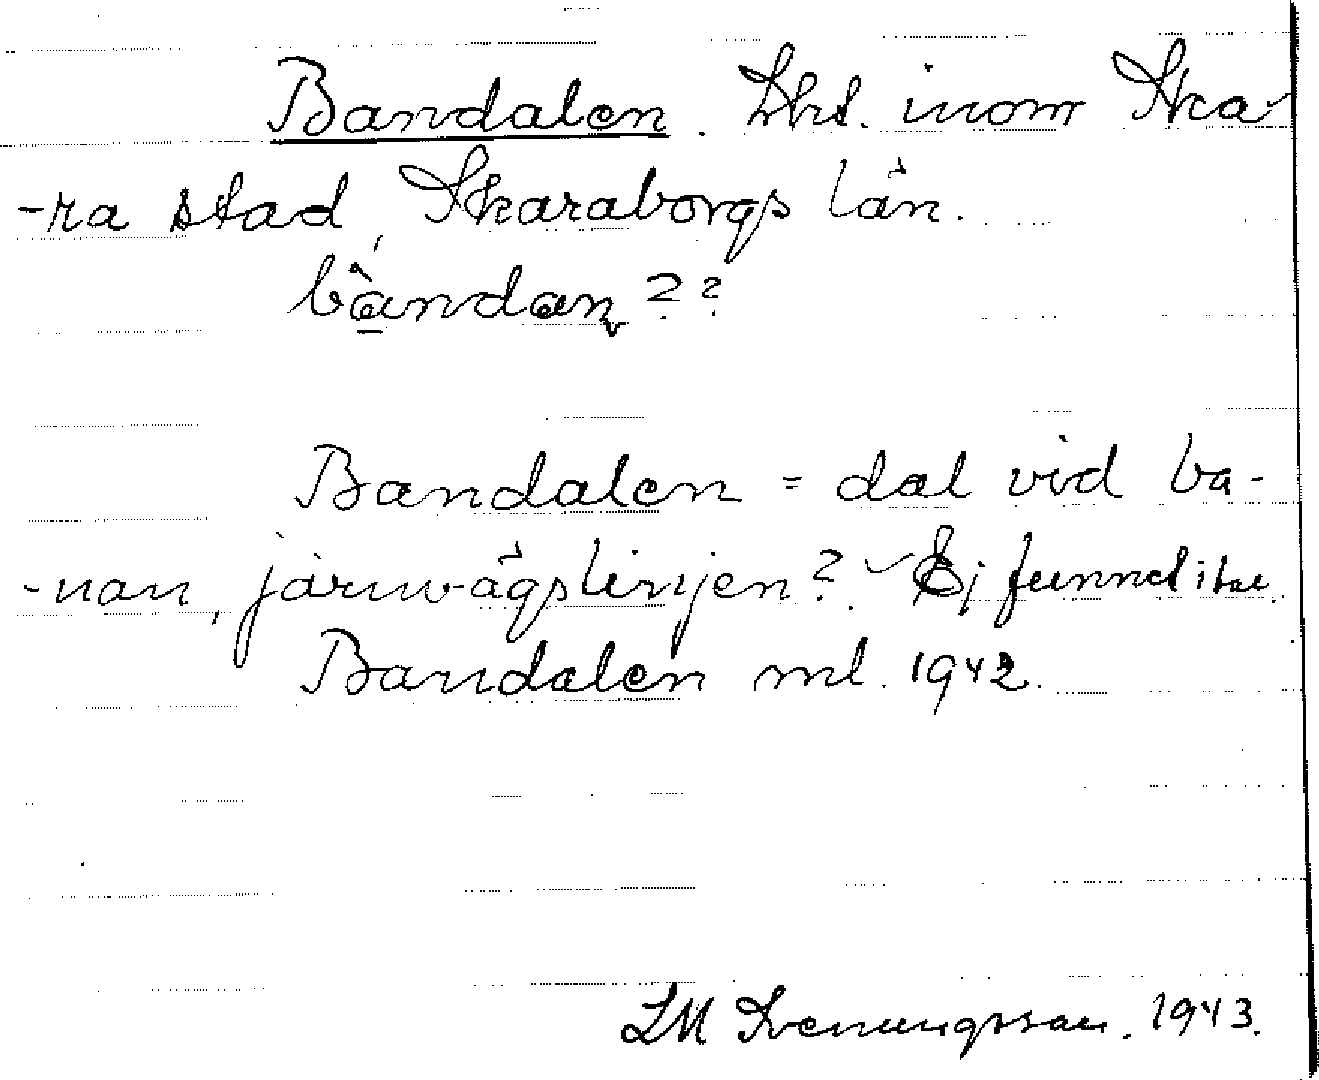 Bandalen. Lht. inom Ska-
-ra stad, Skaraborgs län.
bàndan??
Bandalen = dal vid ba-
-nan, järnvägslinjen? Ej funnet i ku.
Bandalen ml. 1942.
LM Svenungsson. 1943.